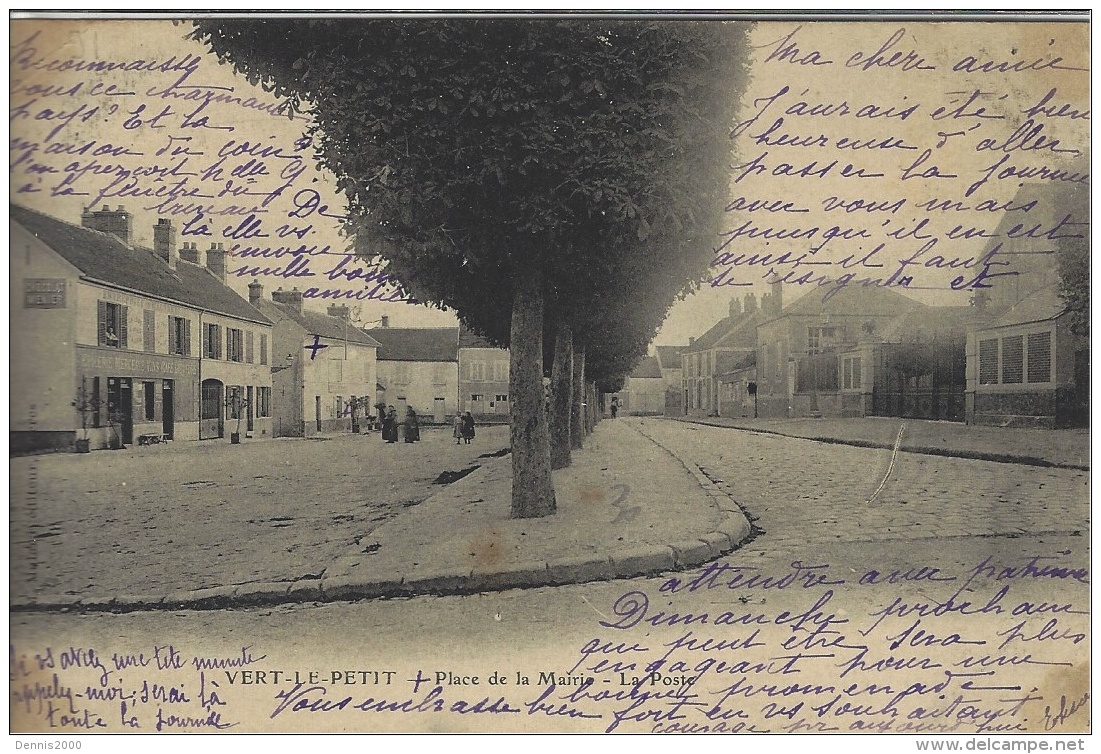 Ma chère amie
J'aurais été bien
heureuse d'aller
passer la journée
avec vous mais
puisqu'il en est
ainsi il faut
se résigner et
attendre avec patience
Dimanche prochain
qui peut être sera plus
engageant pour une
bonne promenade.
Vous embrasse bien fort en vs souhaitant
courage pr aujourd'hui
Reconnaissez
vous ce charmant
pays? Et la
maison du coin?
l'on aperçoit
à la fenêtre du
bureau De
là elle vs
envoie
mille
amitiés
Si vs avez une tite minute
appelez-moi; serai là
toute la journée
VERT-LE-PETIT + Place de la Mairie - La Poste
Dennis2000
www.delcampe.net